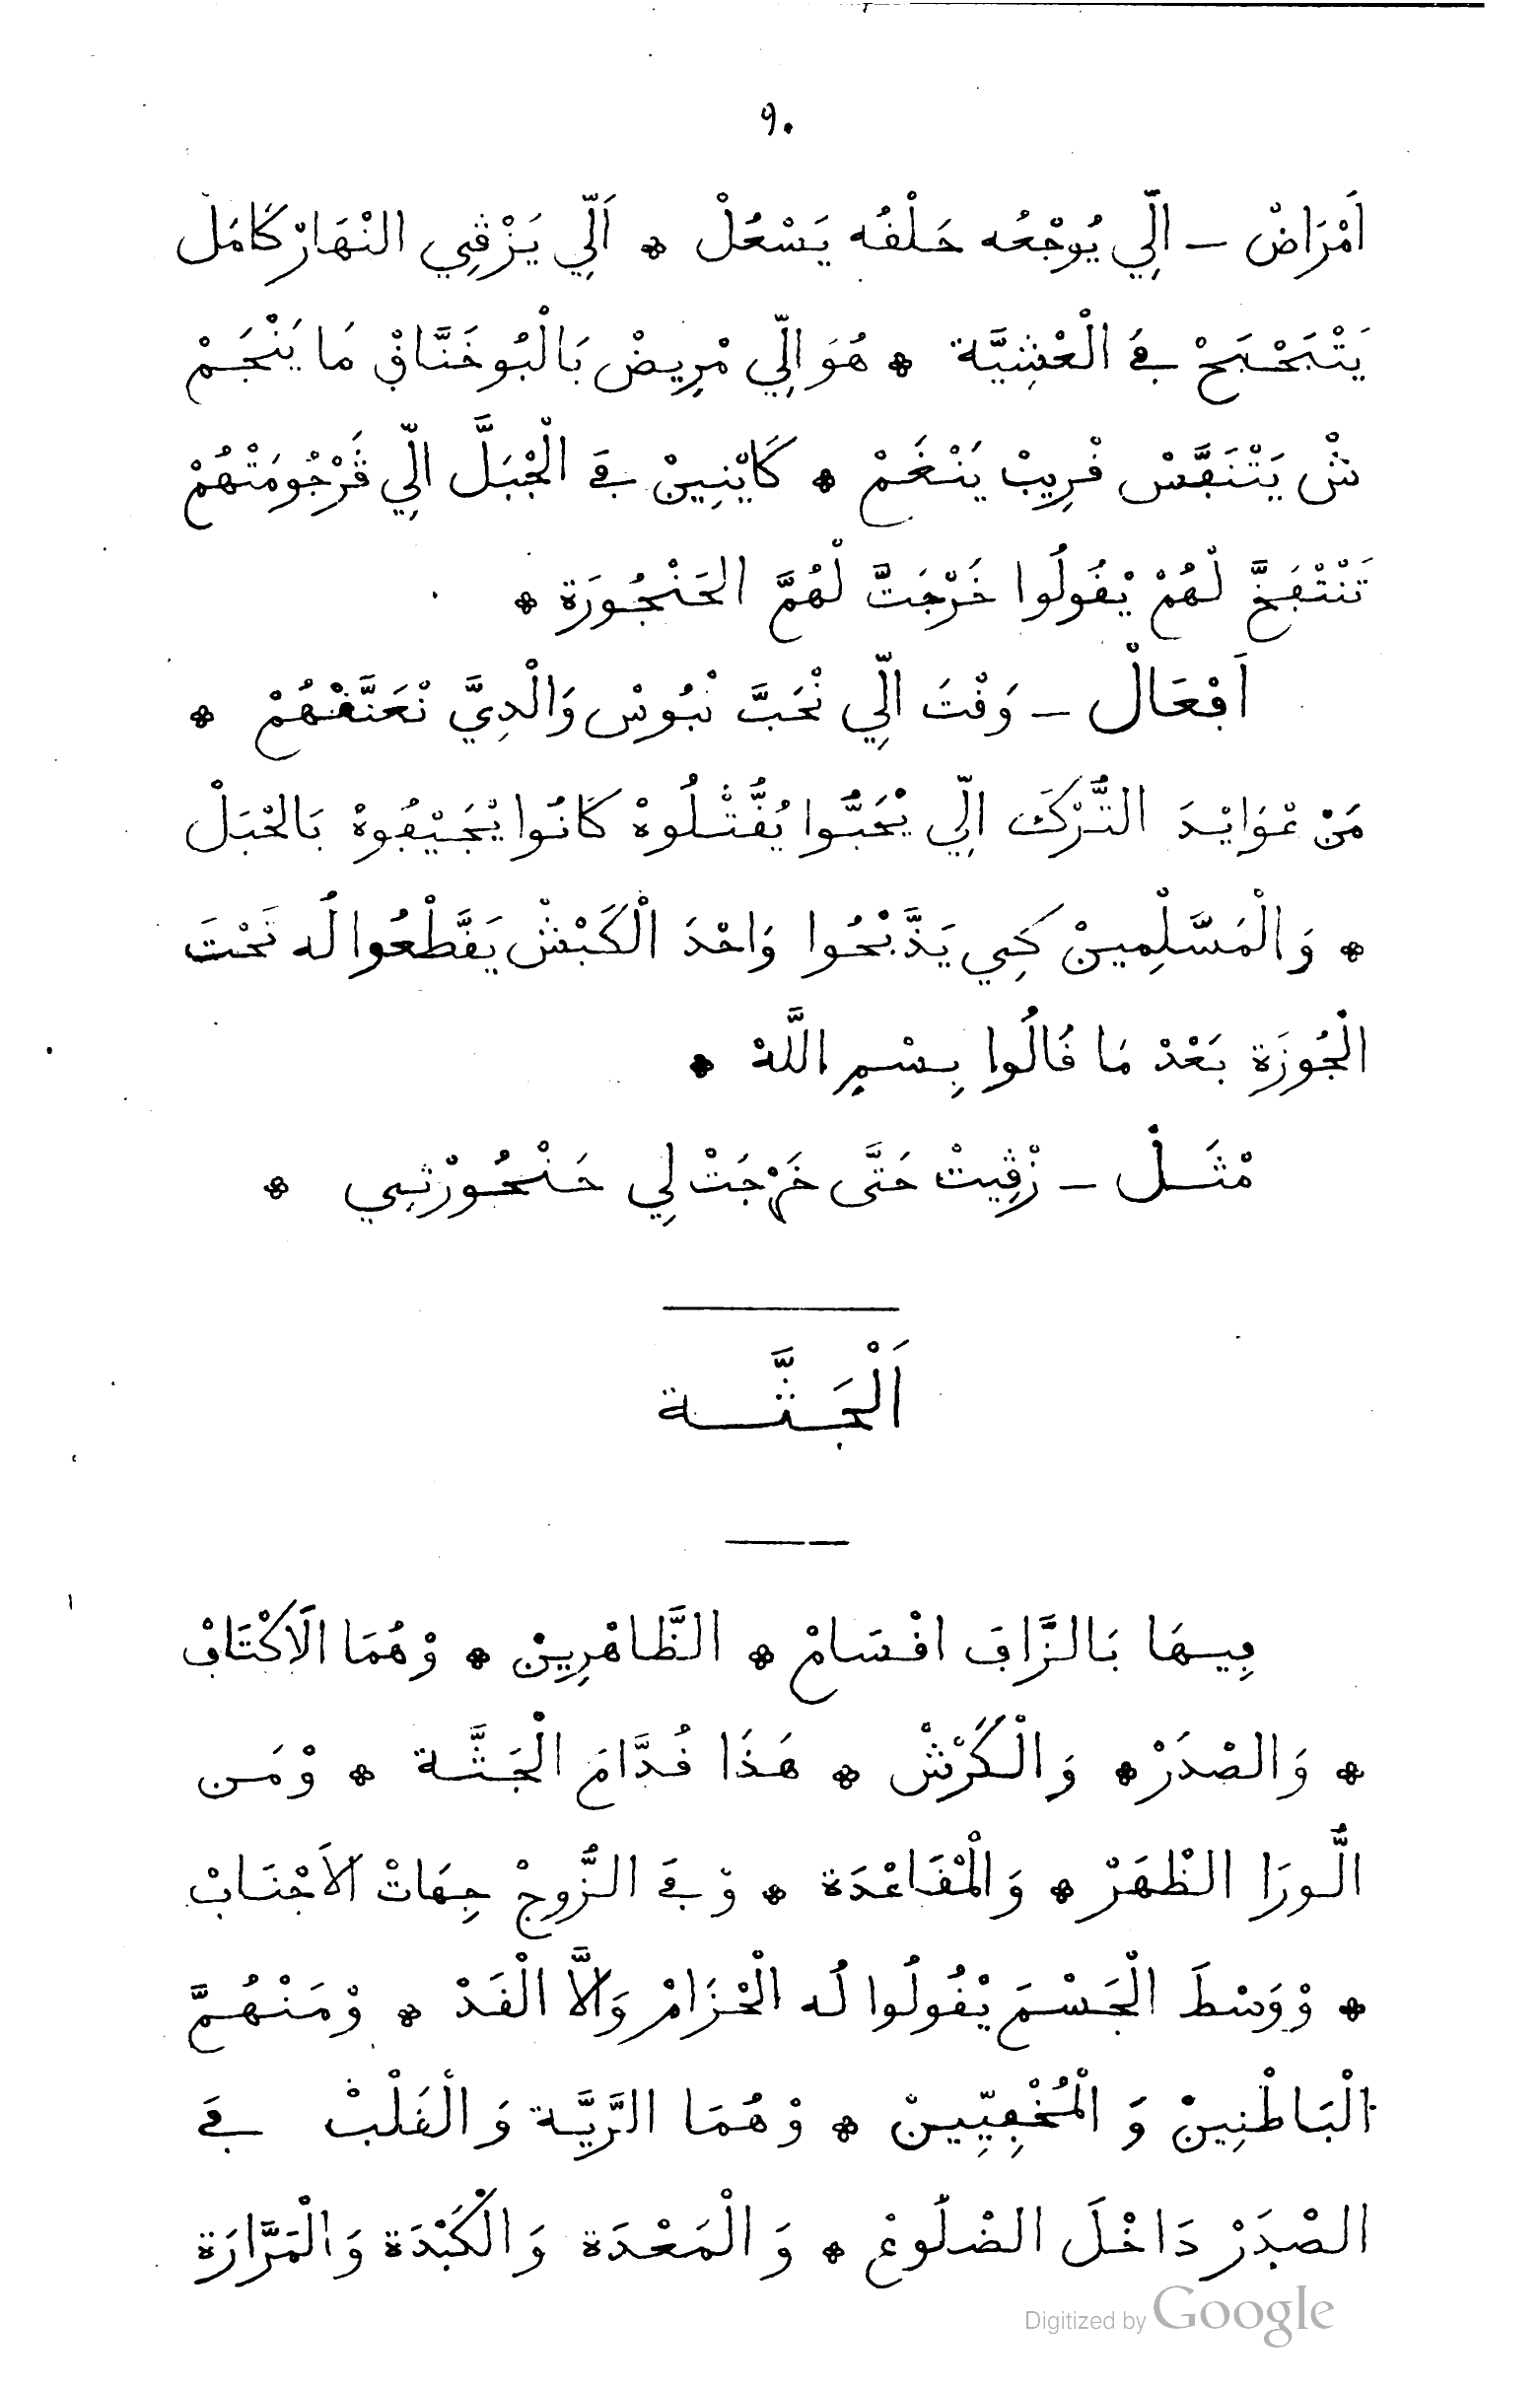 ٩٠
اَمْرَاضْ — الِّي يُوجْعُه حَلْقُه يَسْعُلْ * اَلِّي يَزْڨِي النْهَارْ كَامَلْ
يَتْبَحْبَحْ فَي الْعْشِيَّة * هُوَ الِّي مْرِيضْ بَالْبُوخَنَّاقْ مَا يَنْجَمْ
شْ يَتْنَفَّسْ قْرِيبْ يَنْغَمْ * كَايْنِينْ فَي الْجْبَلَّ الِّي ڨَرْجُومَتْهُمْ
تَنْتْفَخَّ لْهُمْ يْقُولُوا خَرْجَتَّ لْهُمَّ الحَنْجُورَة *
اَفْعَالْ — وَقْتَ الِّي نْحَبَّ نْبُوسْ وَالْدِيَّ نْعَنَّقْهُمْ *
مَنْ عْوَايْدَ التُّرْكَ الِّي يْحَبُّوا يُقُّتْلُوهْ كَانُوا يْجَيْفُوهْ بَالحْبَلْ
* وَالْمَسَّلْمِينْ كِي يَذَّبْحُوا وَاحْدَ الْكَبْشْ يَقَّطْعُوا لُه تَحْتَ
الْجُوزَة بَعْدْ مَا قَالُوا بِسْمِ اللَّهْ *
مْثَلْ — زْڨِيتْ حَتَّى خَرْجَتْ لِي حَنْجُورْتِي *
اَلْجَثَّة
فِيهَا بَالزَّافَ اقْسَامْ * الظَّاهْرِينْ * وْهُمَا الَاكْتَافْ
* وَالصْدَرْ * وَالْكَرْشْ * هَذَا قُدَّامَ الْجَثَّة * وْمَن
الُّورَا الظْهَرْ * وَالْمْقَاعْدَة * وْفَي الزُّوجْ جِهَاتْ الاَجْنَابْ
* وْوَسْطَ الْجَسْمَ يْقُولُوا لُه الْحْزَامْ وَالَّا الْقَدْ * وْمَنْهُمَّ
الْبَاطْنِينْ وَ الْمُخْفِيِّينْ * وْهُمَا الرَّيَّة وَالْقَلْبْ فَي
الصْدَرْ دَاخْلَ الضْلُوعْ * وَالْمَعْدَة وَالْكَبْدَة وَالْمَرَّارَة
Digitized by Google